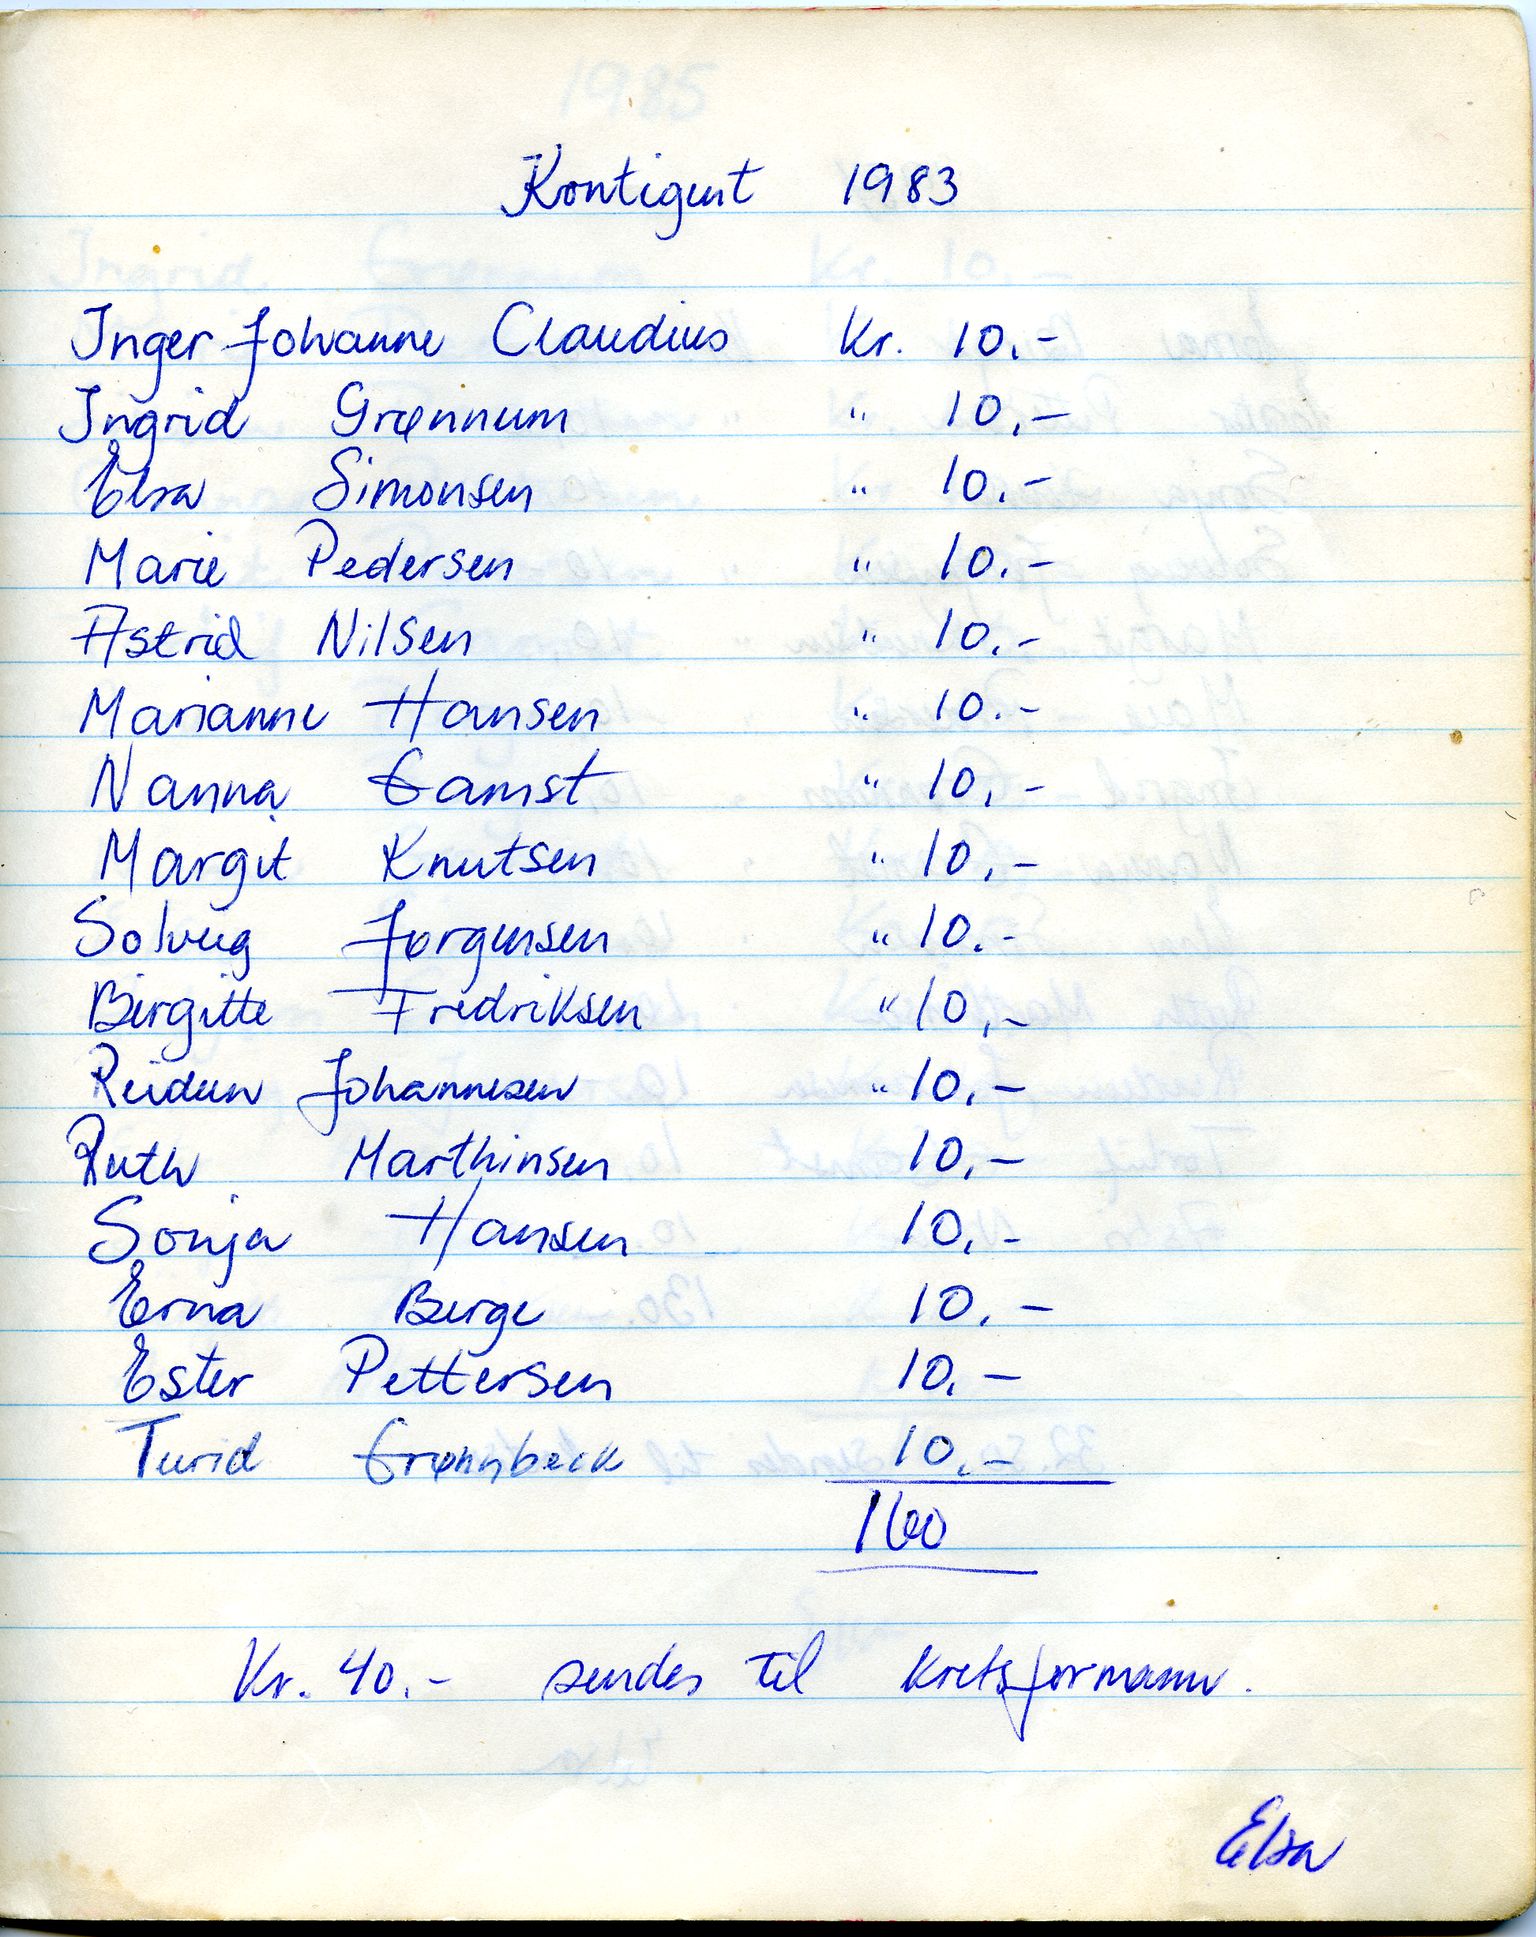 Kontigent 1983
Inger Johanne Claudius Kr. 10.-
Ingrid Grønnum " 10.-
Elsa Simonsen " 10.-
Marie Pedersen " 10.-
Astrid Nilsen " 10.-
Marianne Hansen " 10.-
Nanna Gamst " 10.-
Margit Knutsen " 10.-
Solveig Jørgensen " 10.-
Birgitte Fredriksen " 10.-
Reidun Johannesen " 10.-
Ruth Marthinsen 10.-
Sonja Hansen 10.-
Erna Berge 10.-
Ester Pettersen 10.-
Turid Grønnbeck 10.-
160
Kr. 40.- sendes til kretsformann.
Elsa